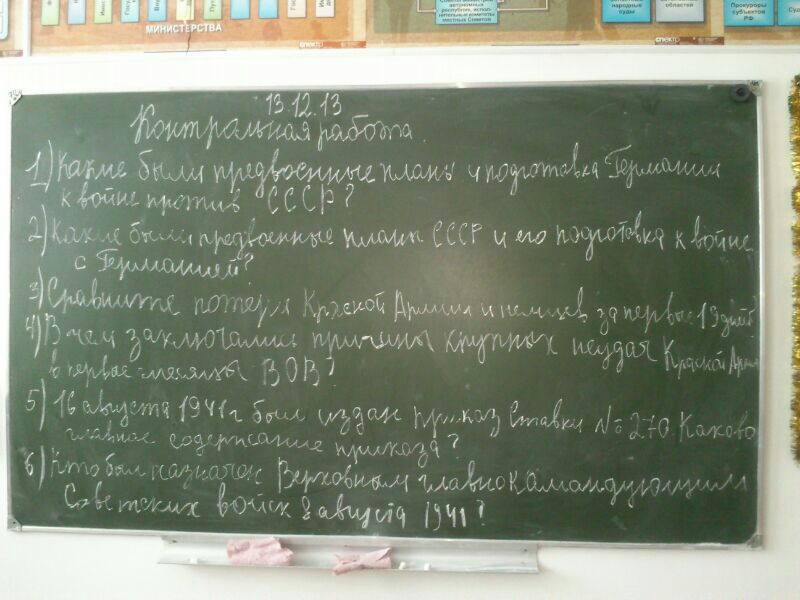 МИНИСТЕРСТВА
спектр
автономных
республик, испол-
нительные комитеты
местных Советов
спектр
народные
суды
областей
Прокуроры
субъектов
РФ
13.12.13
Контрольная работа.
1) Какие были предвоенные планы и подготовка Германии
к войне против СССР?
2) Какие были предвоенные планы СССР и его подготовка к войне
с Германией?
3) Сравните потери Красной Армии и немцев за первые 19 дней
4) В чем заключались причины крупных неудач Красной Армии
в первые месяцы ВОВ?
5) 16 августа 1941 г был издан приказ Ставки №270. Каково
главное содержание приказа?
6) Кто был назначен Верховным главнокамандующим
Советских войск 8 августа 1941?